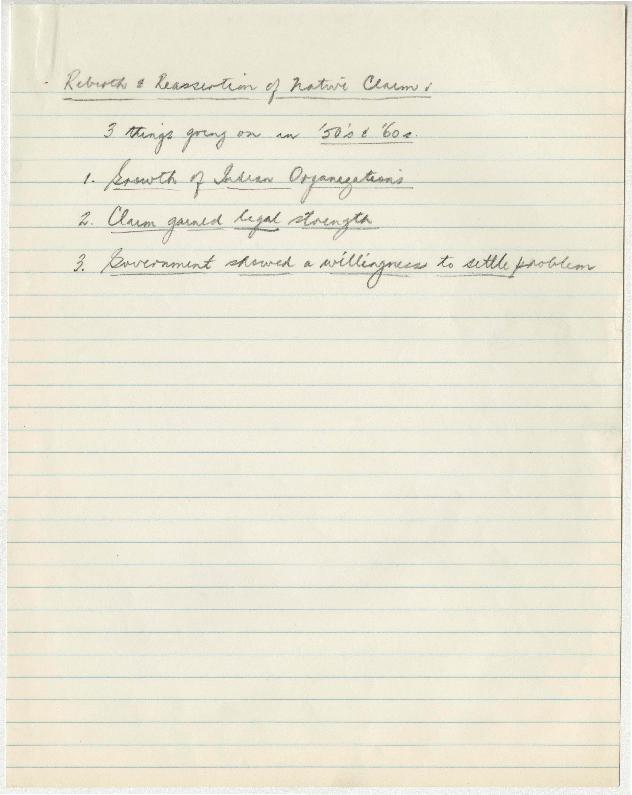 Rebirth & Reassertion of Native Claim:
3 things going on in '50's & '60s.
1. Growth of Indian Organazations
2. Claim gained legal strength
3. Government showed a willingness to settle problem